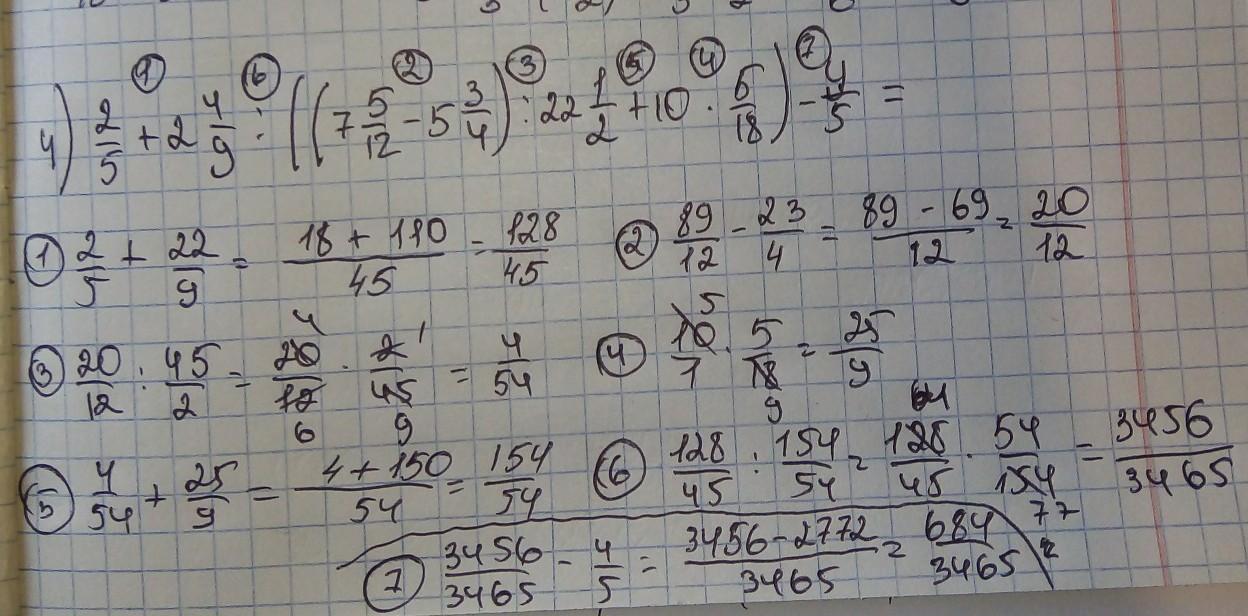 4) 2/5 + 2 4/9 : ((7 5/12 - 5 3/4) : 22 1/2 + 10 · 5/18) - 4/5 =
① 2/5 + 22/9 = (18 + 110)/45 = 128/45 ② 89/12 - 23/4 = (89 - 69)/12 = 20/12
③ 20/12 : 45/2 = 20/12 · 2/45 = 4/54 ④ 10/1 · 5/18 = 25/9
⑤ 4/54 + 25/9 = (4 + 150)/54 = 154/54 ⑥ 128/45 : 154/54 = 128/45 · 54/154 = 3456/3465
⑦ 3456/3465 - 4/5 = (3456 - 2772)/3465 = 684/3465